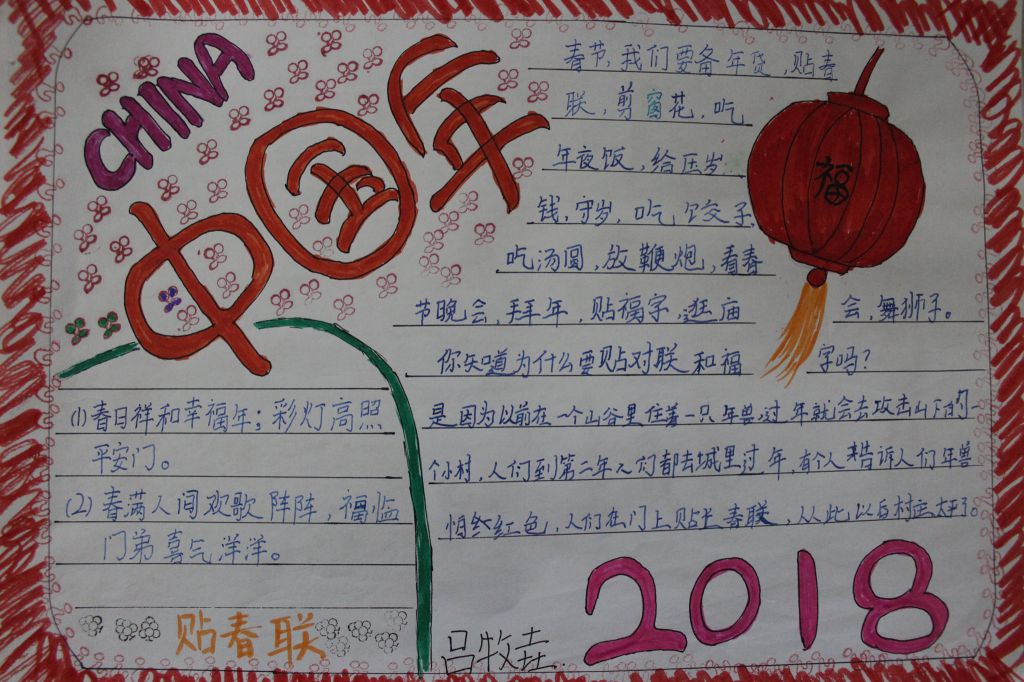 CHINA
中国年
春节,我们要备年货,贴春
联,剪窗花,吃
年夜饭,给压岁
钱,守岁,吃饺子,
吃汤圆,放鞭炮,看春
节晚会,拜年,贴福字,逛庙会,舞狮子。
你知道为什么要贴对联和福字吗?
是因为以前在一个山谷里住着一只年兽,过年就会去攻击山下的一
个小村,人们到第二年人们都去城里过年,有个人来告诉人们年兽
怕红色,人们在门上贴上春联,从此以后村庄太平了。
福
(1)春日祥和幸福年;彩灯高照
平安门。
(2)春满人间欢歌阵阵,福临
门第喜气洋洋。
贴春联
吕牧垚
2018